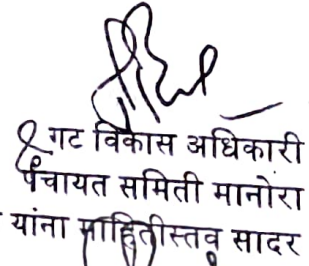 गट विकास अधिकारी
पंचायत समिती मानोरा
यांना माहितीस्तव सादर